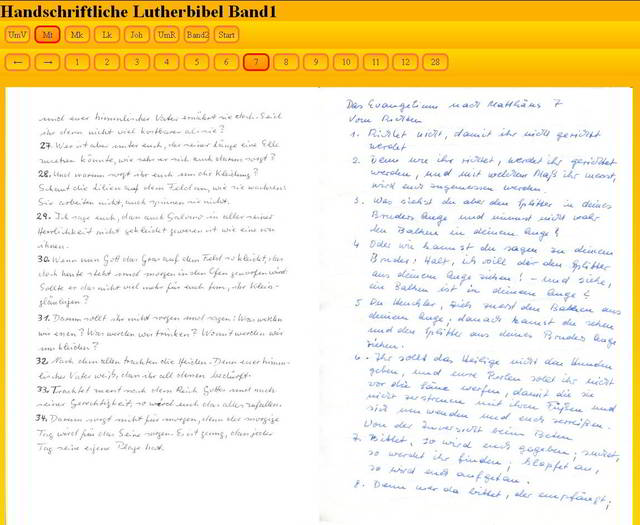 Handschriftliche Lutherbibel Band1
UmV Mt Mk Lk Joh UmR Band2 Start
← → 1 2 3 4 5 6 7 8 9 10 11 12 28
und euer himmlischer Vater ernährt sie doch. Seid
ihr denn nicht viel kostbarer als sie?
27. Wer ist aber unter euch, der seiner Länge eine Elle
zusetzen könnte, wie sehr er sich auch darum sorgt?
28. Und warum sorgt ihr euch um die Kleidung?
Schaut die Lilien auf dem Feld an, wie sie wachsen:
Sie arbeiten nicht, auch spinnen sie nicht.
29. Ich sage euch, dass auch Salomo in aller seiner
Herrlichkeit nicht gekleidet gewesen ist wie eine von
ihnen.
30. Wenn nun Gott das Gras auf dem Feld so kleidet, das
doch heute steht und morgen in den Ofen geworfen wird:
Sollte er das nicht viel mehr für euch tun, ihr Klein-
gläubigen?
31. Darum sollt ihr nicht sorgen und sagen: Was werden
wir essen? Was werden wir trinken? Womit werden wir
uns kleiden?
32. Nach dem allen trachten die Heiden. Denn euer himm-
lischer Vater weiß, dass ihr all dessen bedürft.
33. Trachtet zuerst nach dem Reich Gottes und nach
seiner Gerechtigkeit, so wird euch das alles zufallen.
34. Darum sorgt nicht für morgen, denn der morgige
Tag wird für das Seine sorgen. Es ist genug, dass jeder
Tag seine eigene Plage hat.
Das Evangelium nach Matthäus 7
Vom Richten
1. Richtet nicht, damit ihr nicht gerichtet
werdet
2. Denn wie ihr richtet, werdet ihr gerichtet
werden, und mit welchem Maß ihr messt,
wird euch zugemessen werden.
3. Was siehst du aber den Splitter in deines
Bruders Auge und nimmst nicht wahr
den Balken in deinem Auge?
4. Oder wie kannst du sagen zu deinem
Bruder: Halt, ich will dir den Splitter
aus deinem Auge ziehen! - und siehe,
ein Balken ist in deinem Auge?
5. Du Heuchler, zieh zuerst den Balken aus
deinem Auge, danach kannst du sehen
und den Splitter aus deines Bruders Auge
ziehen.
6. Ihr sollt das Heilige nicht den Hunden
geben, und eure Perlen sollt ihr nicht
vor die Säue werfen, damit die sie
nicht zertreten mit ihren Füßen und
sich umwenden und euch zerreißen.
Von der Zuversicht beim Beten
7. Bittet, so wird euch gegeben; suchet,
so werdet ihr finden; klopfet an,
so wird euch aufgetan.
8. Denn wer da bittet, der empfängt;